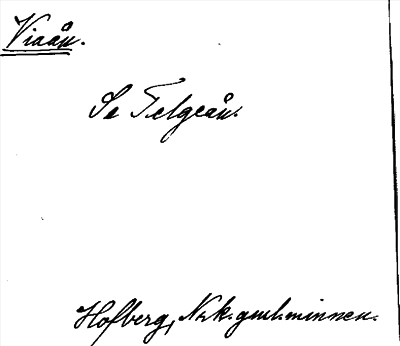 Viaån.
Se Telgeån.
Hofberg, Nrk. gml. minnen.